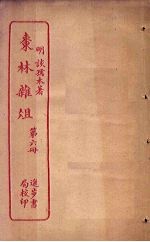 明談孺木著
棗林雜俎
第六冊
進步書
局校印